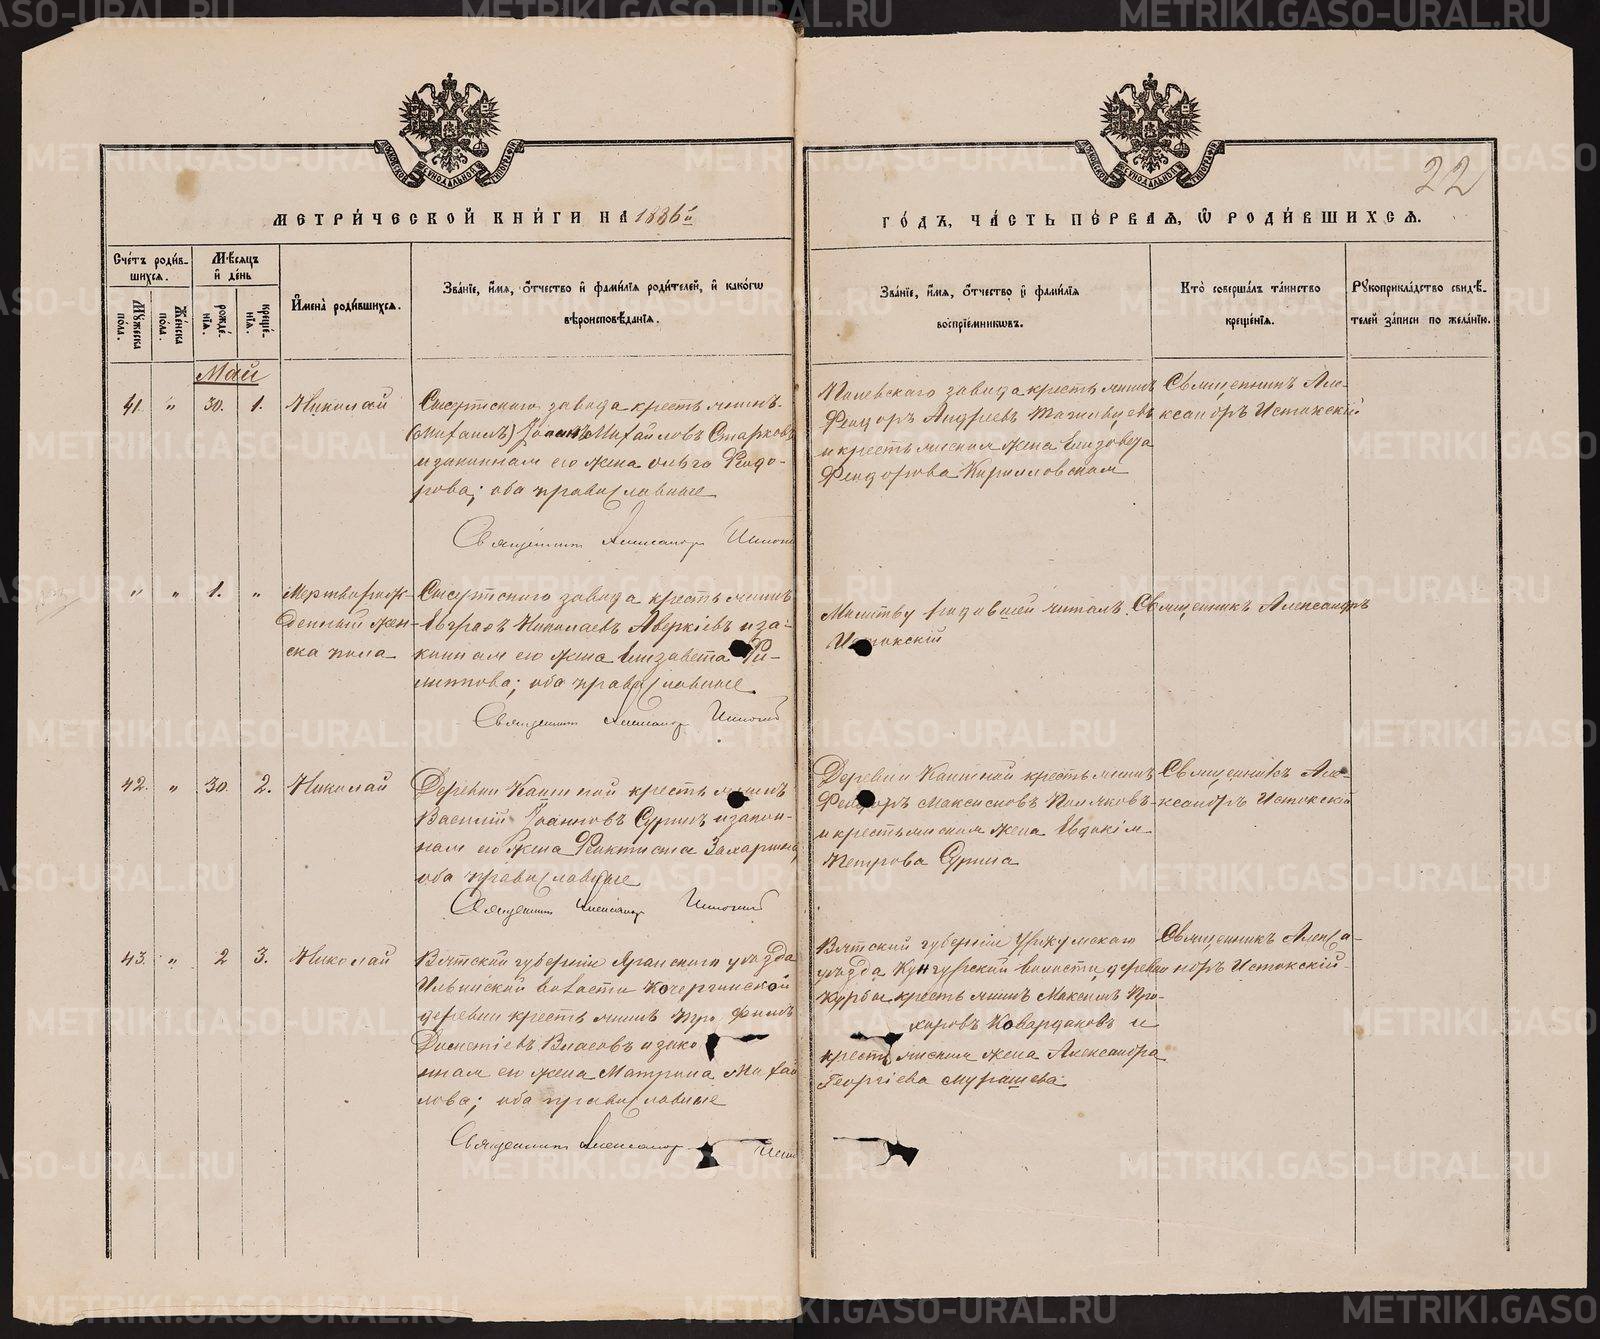 МОСКОВСКОЙ СУНОДАЛЬНОЙ ТИПОГРАФІИ
МОСКОВСКОЙ СУНОДАЛЬНОЙ ТИПОГРАФІИ
22
МЕТРИ́ЧЕСКОЙ КНИ́ГИ НА 1886й
ГО́ДЪ, ЧА́СТЬ ПЕ́РВАѦ, Ѡ РОДИ́ВШИХСѦ.
Сче́тъ роди́вшихсѧ.
Мꙋжеска пола.
Же́нска пола.
Мѣ́сѧцъ и҆ де́нь
рожде́нїѧ.
креще́нїѧ.
И҆мена̀ роди́вшихсѧ.
Зва́нїе, и҆́мѧ, ѻ҆́тчество и҆ фами́лїѧ роди́телей, и҆ како́гѡ
вѣроисповѣ́данїѧ.
Зва́нїе, и҆́мѧ, ѻ҆́тчество и҆ фами́лїѧ
воспрїе́мникѡвъ.
Кто̀ соверша́лъ та́инство
креще́нїѧ.
Рꙋкоприкла́дство свидѣ́телей за́писи по жела́нїю.
Май
41. " 30. 1. Николай
Сысертскаго завода крестьянинъ
(Михаилъ) Іоаннъ Михайловъ Старковъ
и законная его жена Ольга Феодо-
рова; оба православные
Священникъ Александръ
Полевскаго завода крестьянинъ
Феодоръ Андреевъ
и крестьянская жена Елизавета
Феодорова Кирилловская
Священникъ Але-
ксандръ Истокскій
" " 1. " Мертворож-
денный жен-
ска пола
Сысертскаго завода крестьянинъ
Евграфъ Николаевъ Аверкіевъ и за-
конная его жена Елизавета Фи-
липпова; оба православные
Священникъ Александръ Истокскій
Молитву родившей читалъ Священникъ Александръ
Истокскій
42. " 30. 2. Николай
Деревни крестьянинъ
Василій Іоанновъ Суринъ и закон-
ная его жена Феоктиста Захарьина,
оба православные
Священникъ Александръ Истокскій
Деревни крестьянинъ
Феодоръ Максимовъ Поляковъ
и крестьянская жена Евдокія
Петрова Сурина
Священникъ Але-
ксандръ Истокскій
43. " 2 3. Николай
Вятской губерніи Яранскаго уѣзда
Ильинской волости Кочергинской
деревни крестьянинъ Трофимъ
Власовъ и зако
нная его жена Матрона Михай
лова; оба православные
Священникъ Александръ
Вятской губерніи Уржумскаго
уѣзда волости, деревни
Курбы крестьянинъ Максимъ Про-
харовъ Ковардаковъ и
крестьянская жена Александра
Георгіева Мурашева
Священникъ Алекса-
ндръ Истокскій
METRIKI.GASO-URAL.RU